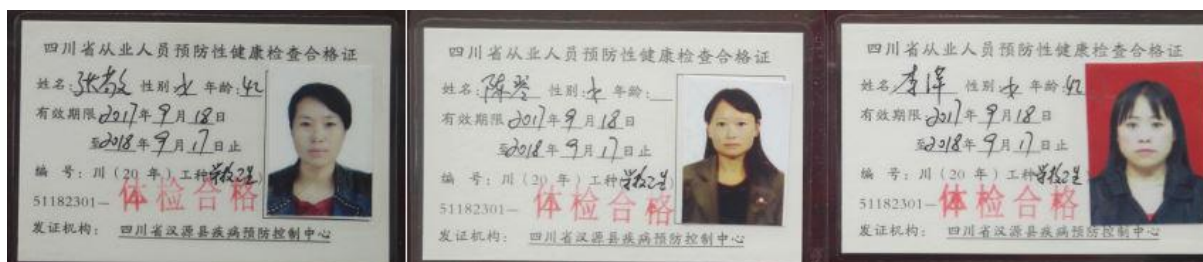 四川省从业人员预防性健康检查合格证
姓名: 张 性别 女 年龄: 42
有效期限 2017年9月18日
至2018年9月17日止
编 号: 川(20 年)工种学校卫生)
51182301—
体检合格
发证机构: 四川省汉源县疾病预防控制中心
四川省从业人员预防性健康检查合格证
姓名: 陈 性别: 女 年龄:
有效期限 2017年9月18日
至2018年9月17日止
编 号: 川(20 年)工种学校卫生)
51182301—
体检合格
发证机构: 四川省汉源县疾病预防控制中心
四川省从业人员预防性健康检查合格证
姓名: 李萍 性别 女 年龄: 42
有效期限 2017年9月18日
至2018年9月17日止
编 号: 川(20 年)工种学校卫生
51182301—
体检合格
发证机构: 四川省汉源县疾病预防控制中心